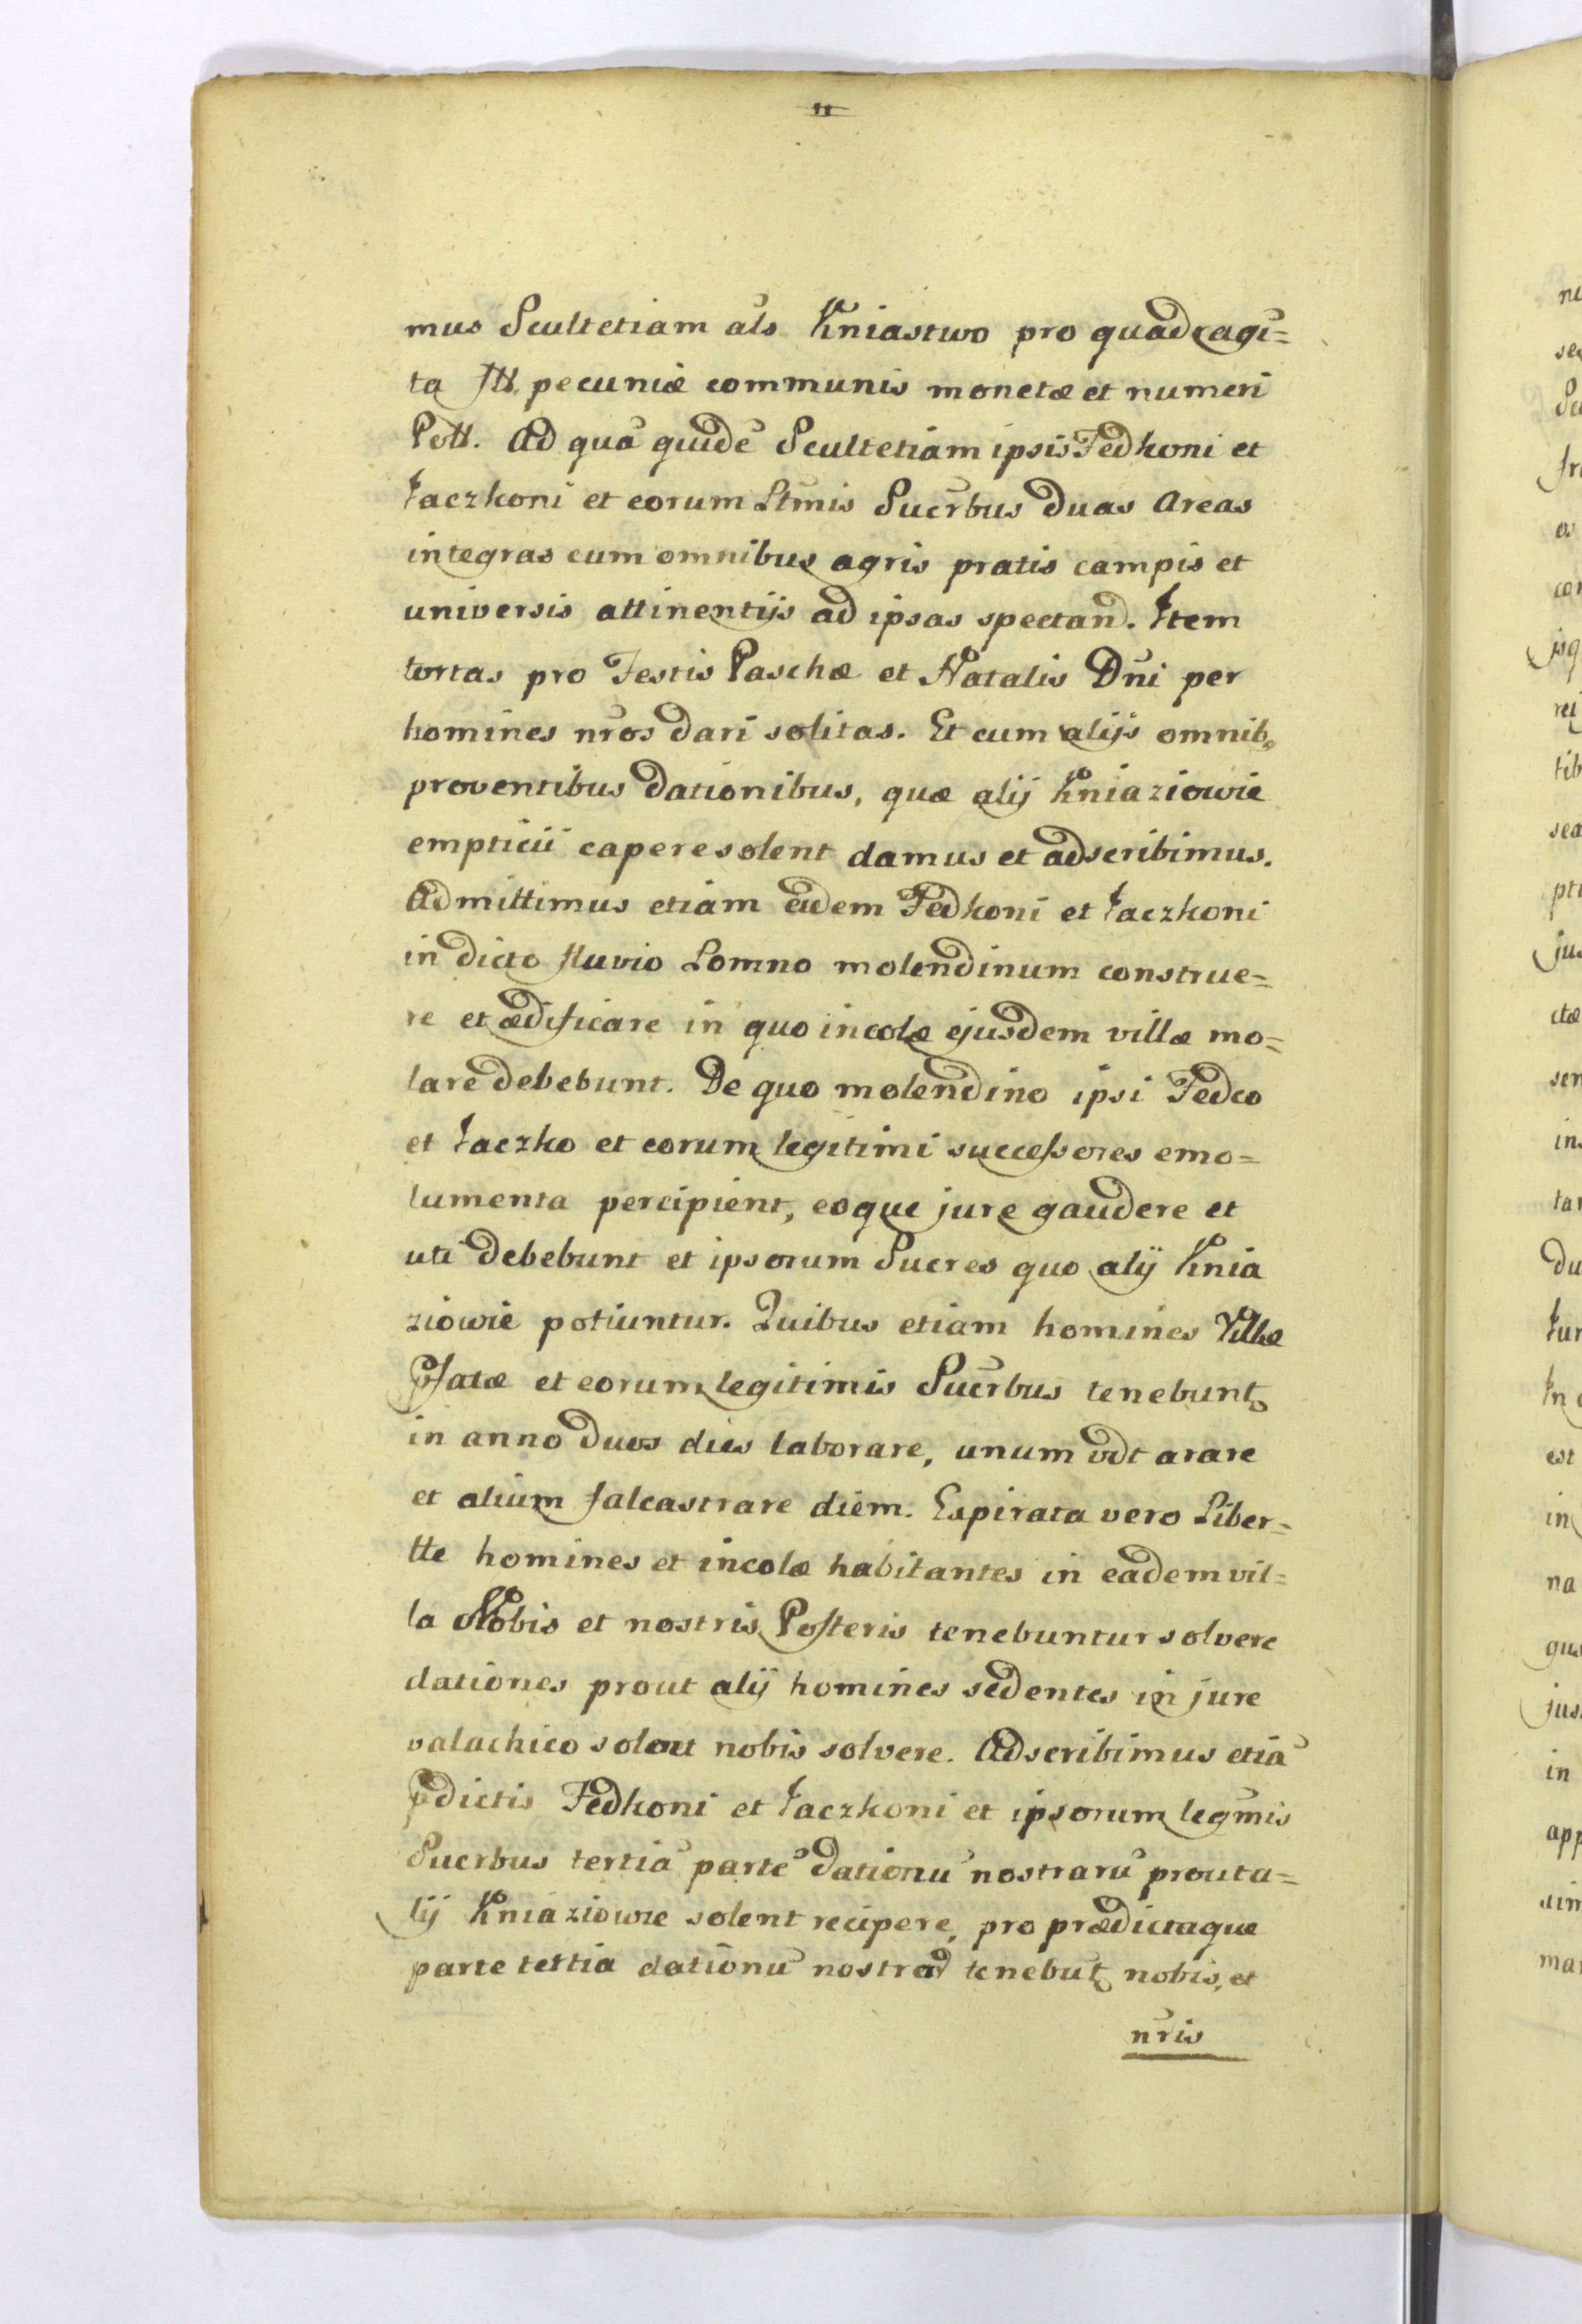 mus Scultetiam als Kniastwo pro quadragi=
ta fll. pecuniæ communis monetæ et numeri
Poll. Ad quā quidē Scultetiam ipsis Fedkoni et
Jaczkoni et eorum Ltmis Sucrbus duas Areas
integras cum omnibus agris pratis campis et
universis attinentijs ad ipsas spectand. Item
tortas pro Festis Paschæ et Natalis Dñi per
homines nros dari solitas. Et cum alijs omnib9
proventibus dationibus, quæ alij Kniaziowie
empticii capere solent damus et adscribimus.
Admittimus etiam eidem Fedkoni et Jaczkoni
in dicto fluvio Lomno molendinum construe=
re et ædificare in quo incolæ ejusdem villæ mo=
lare debebunt. De quo molendino ipsi Fedco
et Jaczko et eorum legitimi successores emo=
lumenta percipient, eoque jure gaudere et
uti debebunt et ipsorum Sucres quo alij Knia
ziowie potiuntur. Quibus etiam homines Villæ
Pfatæ et eorum legitimis Sucrbus tenebunt
in anno duos dies laborare, unum vdt arare
et alium falcastrare diem. Expirata vero Liber=
tte homines et incolæ habitantes in eadem vil=
la Nobis et nostris Posteris tenebuntur solvere
dationes prout alij homines sedentes in jure
valachico solent nobis solvere. Adscribimus etiā
pdictis Fedkoni et Jaczkoni et ipsorum legmis
Sucrbus tertiā partē dationū nostrarū prout a=
lij Kniaziowie solent recipere, pro prædictaque
parte tertia dationū nostrar tenebūt nobis, et
nris